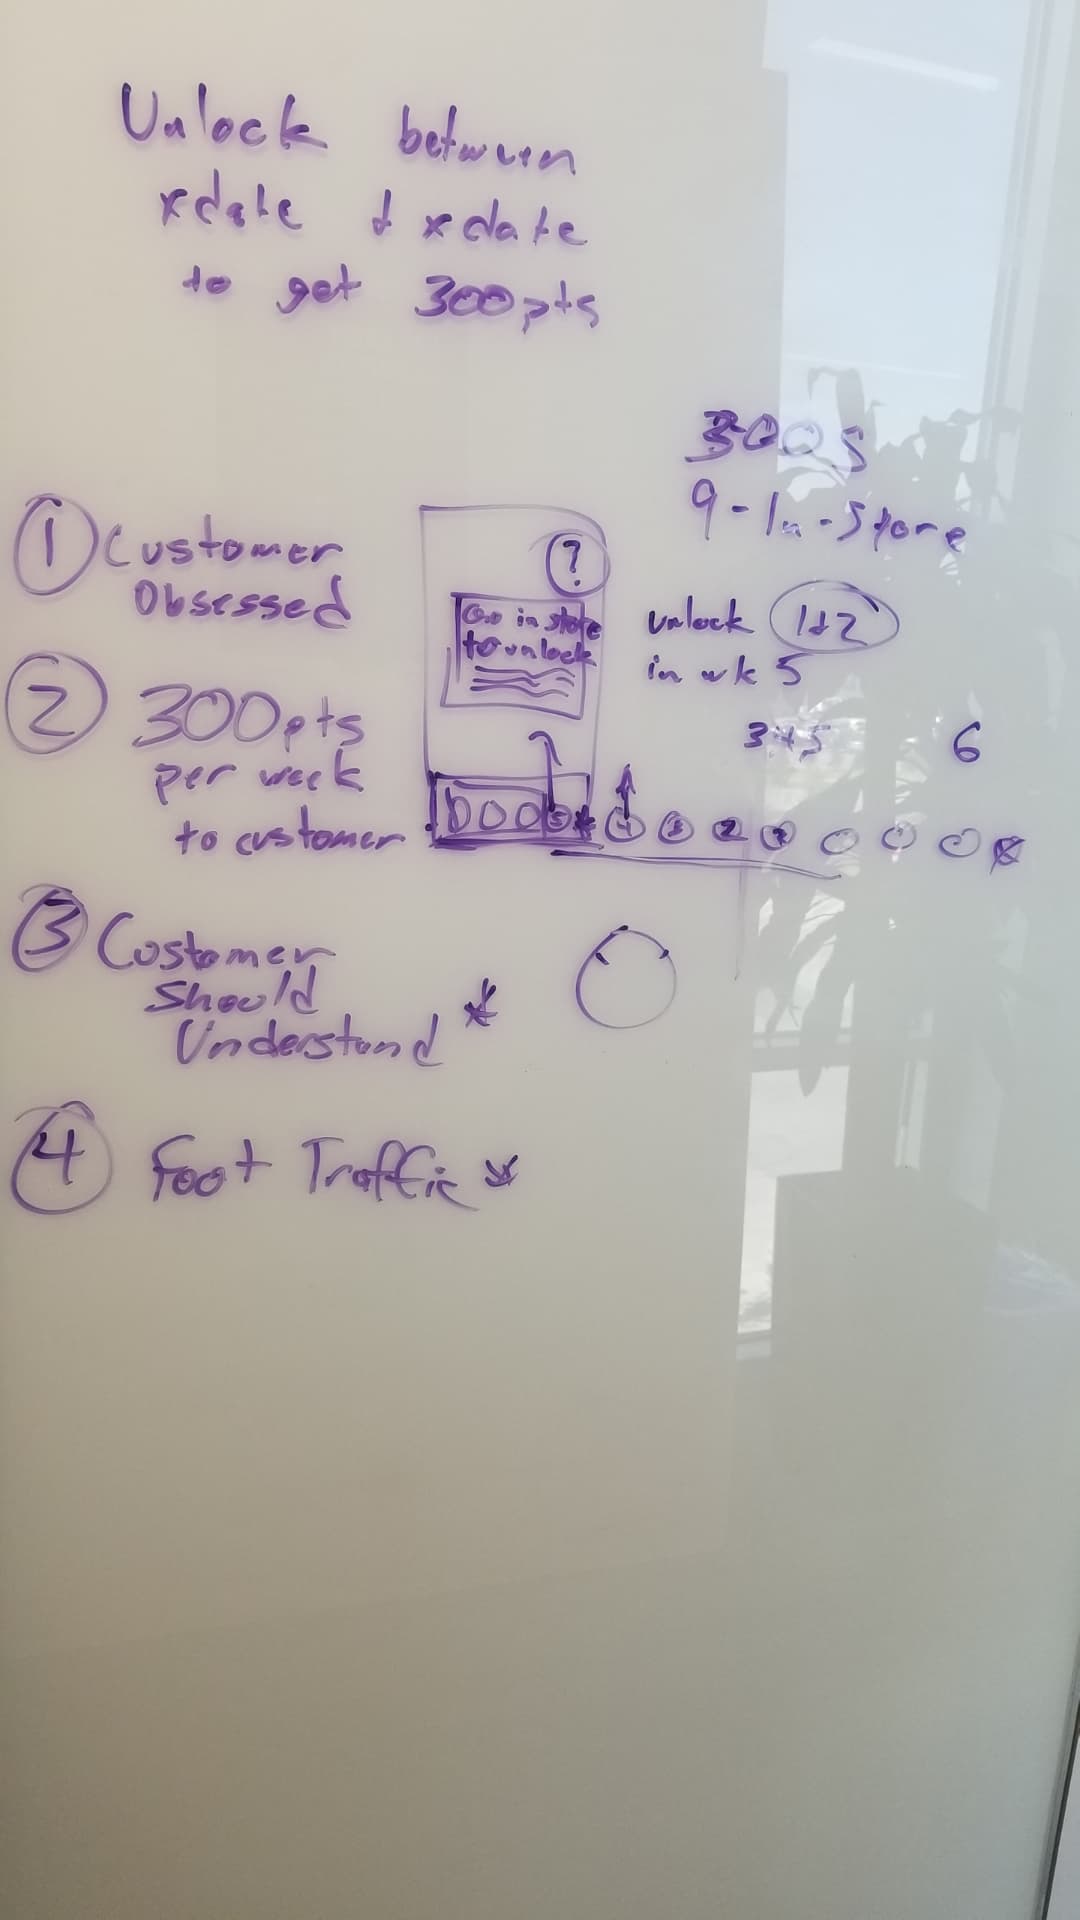 Unlock between
xdate + xdate
to get 300pts
300s
9-In-Store
① Customer
Obsessed
?
Go in store
to unlock
unlock 1+2
in wk 5
② 300pts
per week
to customer
3+5 6
③ Customer
Should
Understand *
④ Foot Traffic *